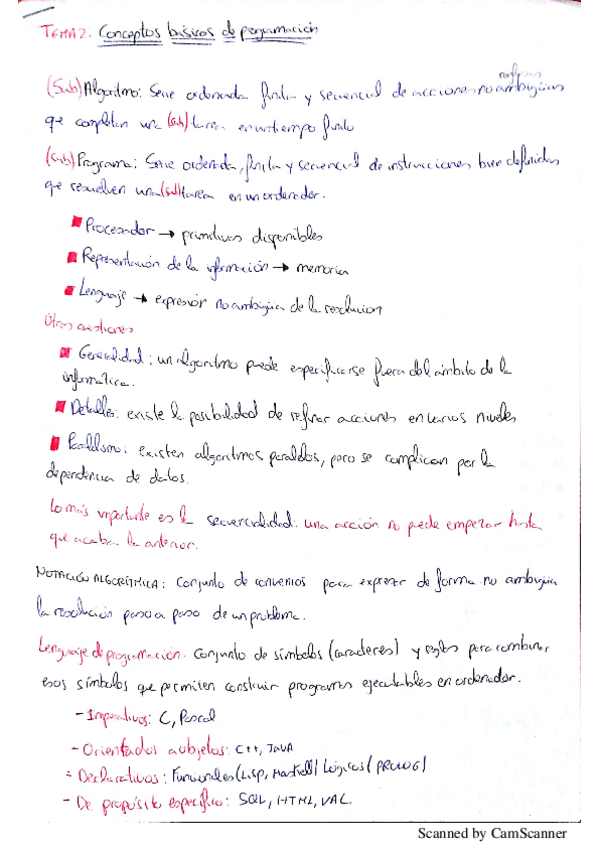 TEMA 2. Conceptos básicos de programación
(Sub)Algoritmo: Serie ordenada finita y secuencial de acciones no ambigüas
que completan una (sub)tarea en un tiempo finito
(Sub)Programa: Serie ordenada, finita y secuencial de instrucciones bien definidas
que resuelven una (sub)tarea en un ordenador.
Procesador → primitivas disponibles
Representación de la información → memoria
Lenguaje → expresión no ambigüa de la resolución
Otras cuestiones
Generalidad: un algoritmo puede especificarse fuera del ámbito de la
informática.
Detalles: existe la posibilidad de refinar acciones en varios niveles
Paralelismo: existen algoritmos paralelos, pero se complican por la
dependencia de datos.
Lo más importante es la secuencialidad: una acción no puede empezar hasta
que acabe la anterior.
NOTACIÓN ALGORÍTMICA: Conjunto de convenios para expresar de forma no ambigüa
la resolución paso a paso de un problema.
Lenguaje de programación: Conjunto de símbolos (caracteres) y reglas para combinar
esos símbolos que permiten construir programas ejecutables en ordenador.
- Imperativos: C, Pascal
- Orientados a objetos: C++, JAVA
- Declarativos: Funcionales (Lisp, Haskell) Lógicos (PROLOG)
- De propósito específico: SQL, HTML, VAL.
Scanned by CamScanner